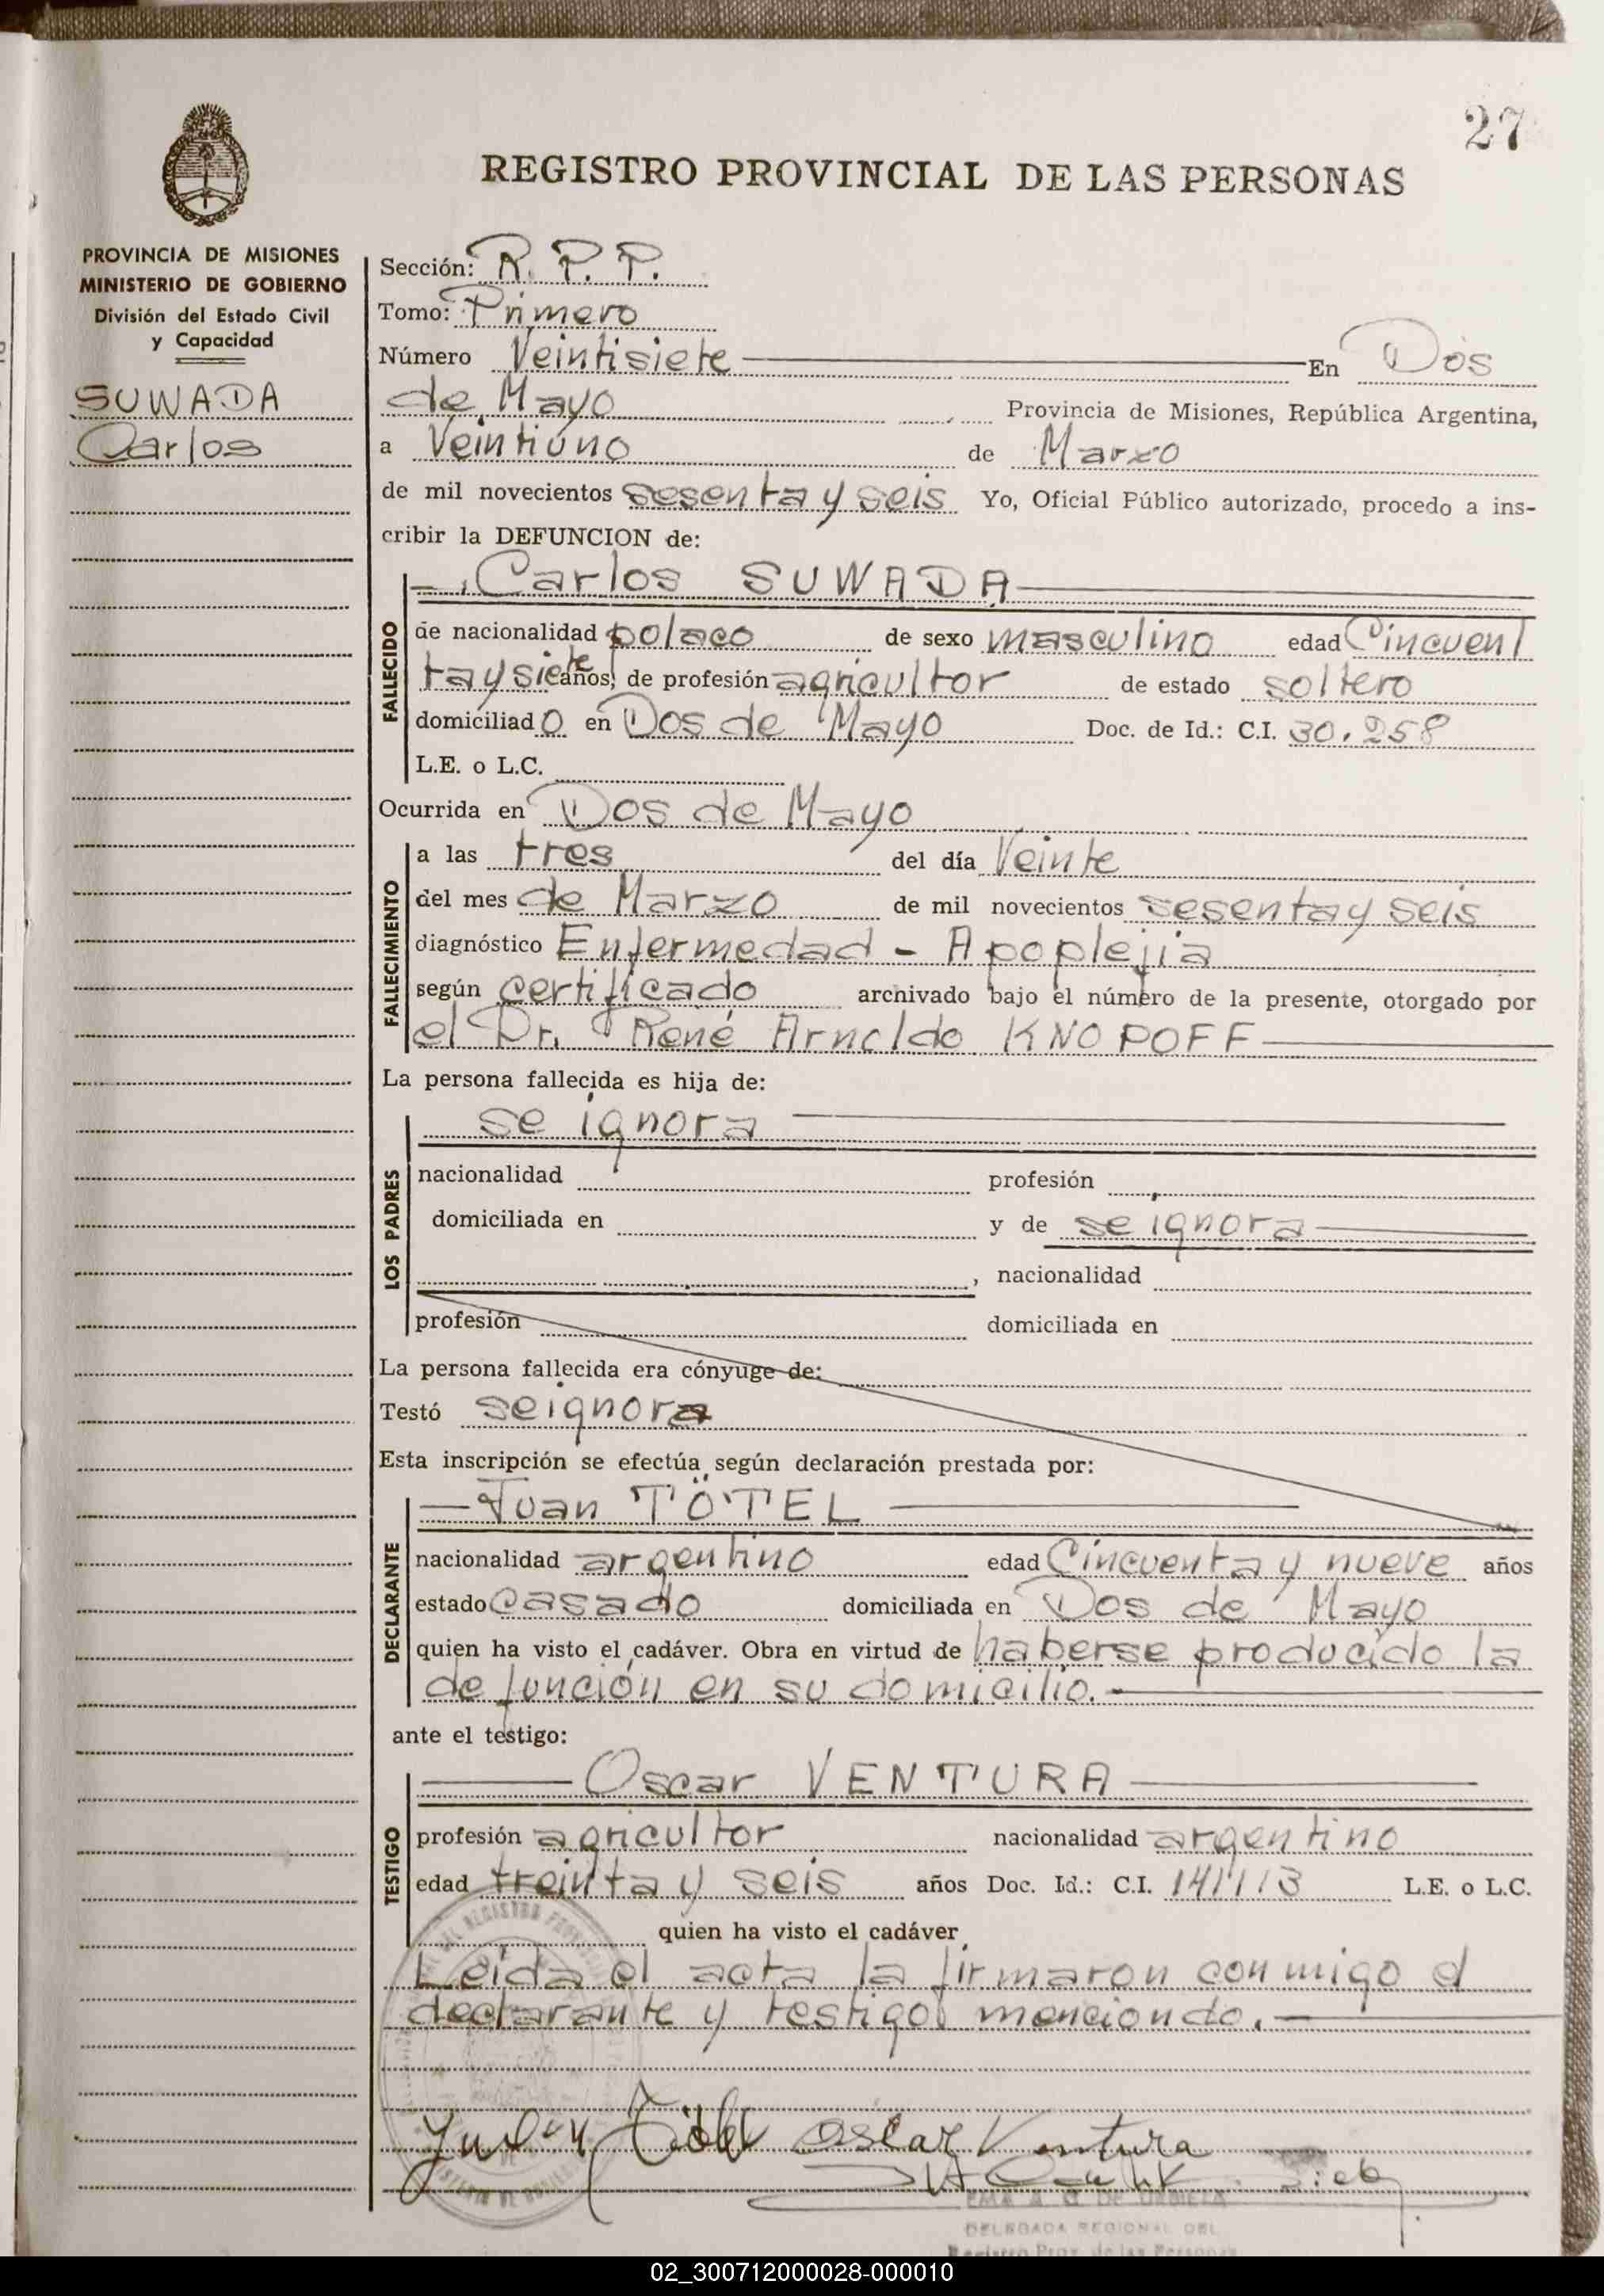 27
REGISTRO PROVINCIAL DE LAS PERSONAS
PROVINCIA DE MISIONES
MINISTERIO DE GOBIERNO
División del Estado Civil
y Capacidad
SUWADA
Carlos
Sección: R. P. P.
Tomo: Primero
Número Veintisiete En Dos
de Mayo Provincia de Misiones, República Argentina,
a Veintiúno de Marzo
de mil novecientos sesenta y seis Yo, Oficial Público autorizado, procedo a ins-
cribir la DEFUNCION de:
Carlos SUWADA
FALLECIDO
de nacionalidad polaco de sexo masculino edad Cincuen
ta y siete años, de profesión agricultor de estado soltero
domiciliado en Dos de Mayo Doc. de Id.: C.I. 30.258
L.E. o L.C.
Ocurrida en Dos de Mayo
FALLECIMIENTO
a las tres del día Veinte
del mes de Marzo de mil novecientos sesenta y seis
diagnóstico Enfermedad - Apoplejia
según certificado archivado bajo el número de la presente, otorgado por
el Dr. René Arnoldo KNOPOFF
La persona fallecida es hija de:
LOS PADRES
se ignora
nacionalidad profesión
domiciliada en y de se ignora
, nacionalidad
profesión domiciliada en
La persona fallecida era cónyuge de:
Testó se ignora
Esta inscripción se efectúa según declaración prestada por:
DECLARANTE
Juan TÖTEL
nacionalidad argentino edad Cincuenta y nueve años
estado Casado domiciliada en Dos de Mayo
quien ha visto el cadáver. Obra en virtud de haberse producido la
defunción en su domicilio.
ante el testigo:
TESTIGO
Oscar VENTURA
profesión agricultor nacionalidad argentino
edad treinta y seis años Doc. Id.: C.I. 141113 L.E. o L.C.
quien ha visto el cadáver
Leida el acta la firmaron conmigo el
declarante y testigo menciondo.
Oscar Ventura
DELEGADA REGIONAL DEL
Registro Prov. de las Personas
02_300712000028-000010